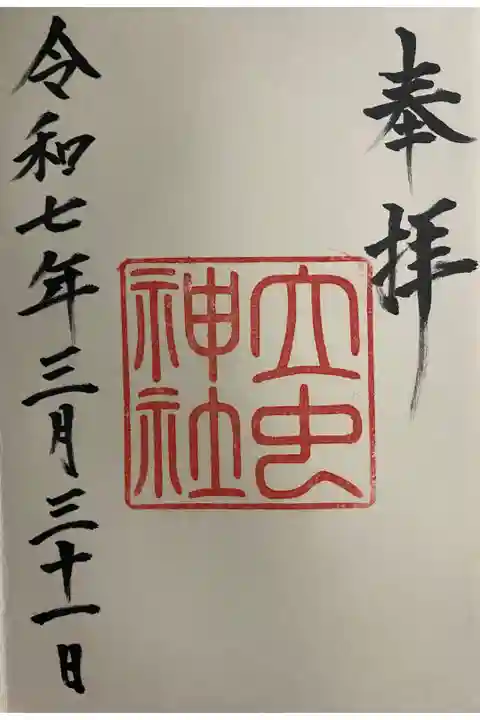 奉拝
立虫
神社
令和七年三月三十一日